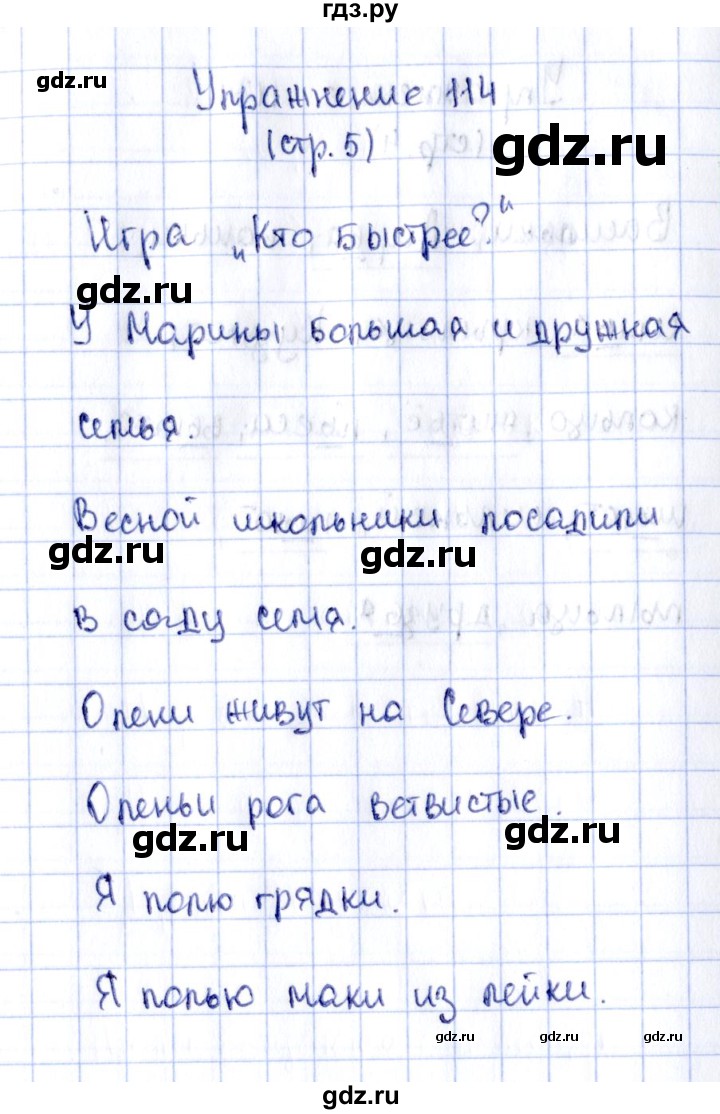 гдз.ру
gdz.ru
Упражнение 114
(стр. 5)
gdz.ru
Игра „Кто быстрее?“
gdz.ru
У Марины большая и дружная
семья.
Весной школьники посадили
gdz.ru
gdz.ru
в саду семя.
Олени живут на Севере.
Оленьи рога ветвистые.
gdz.ru
gdz.ru
Я полю грядки.
Я полью маки из лейки.
gdz.ru
gdz.ru
gdz.ru
gdz.ru